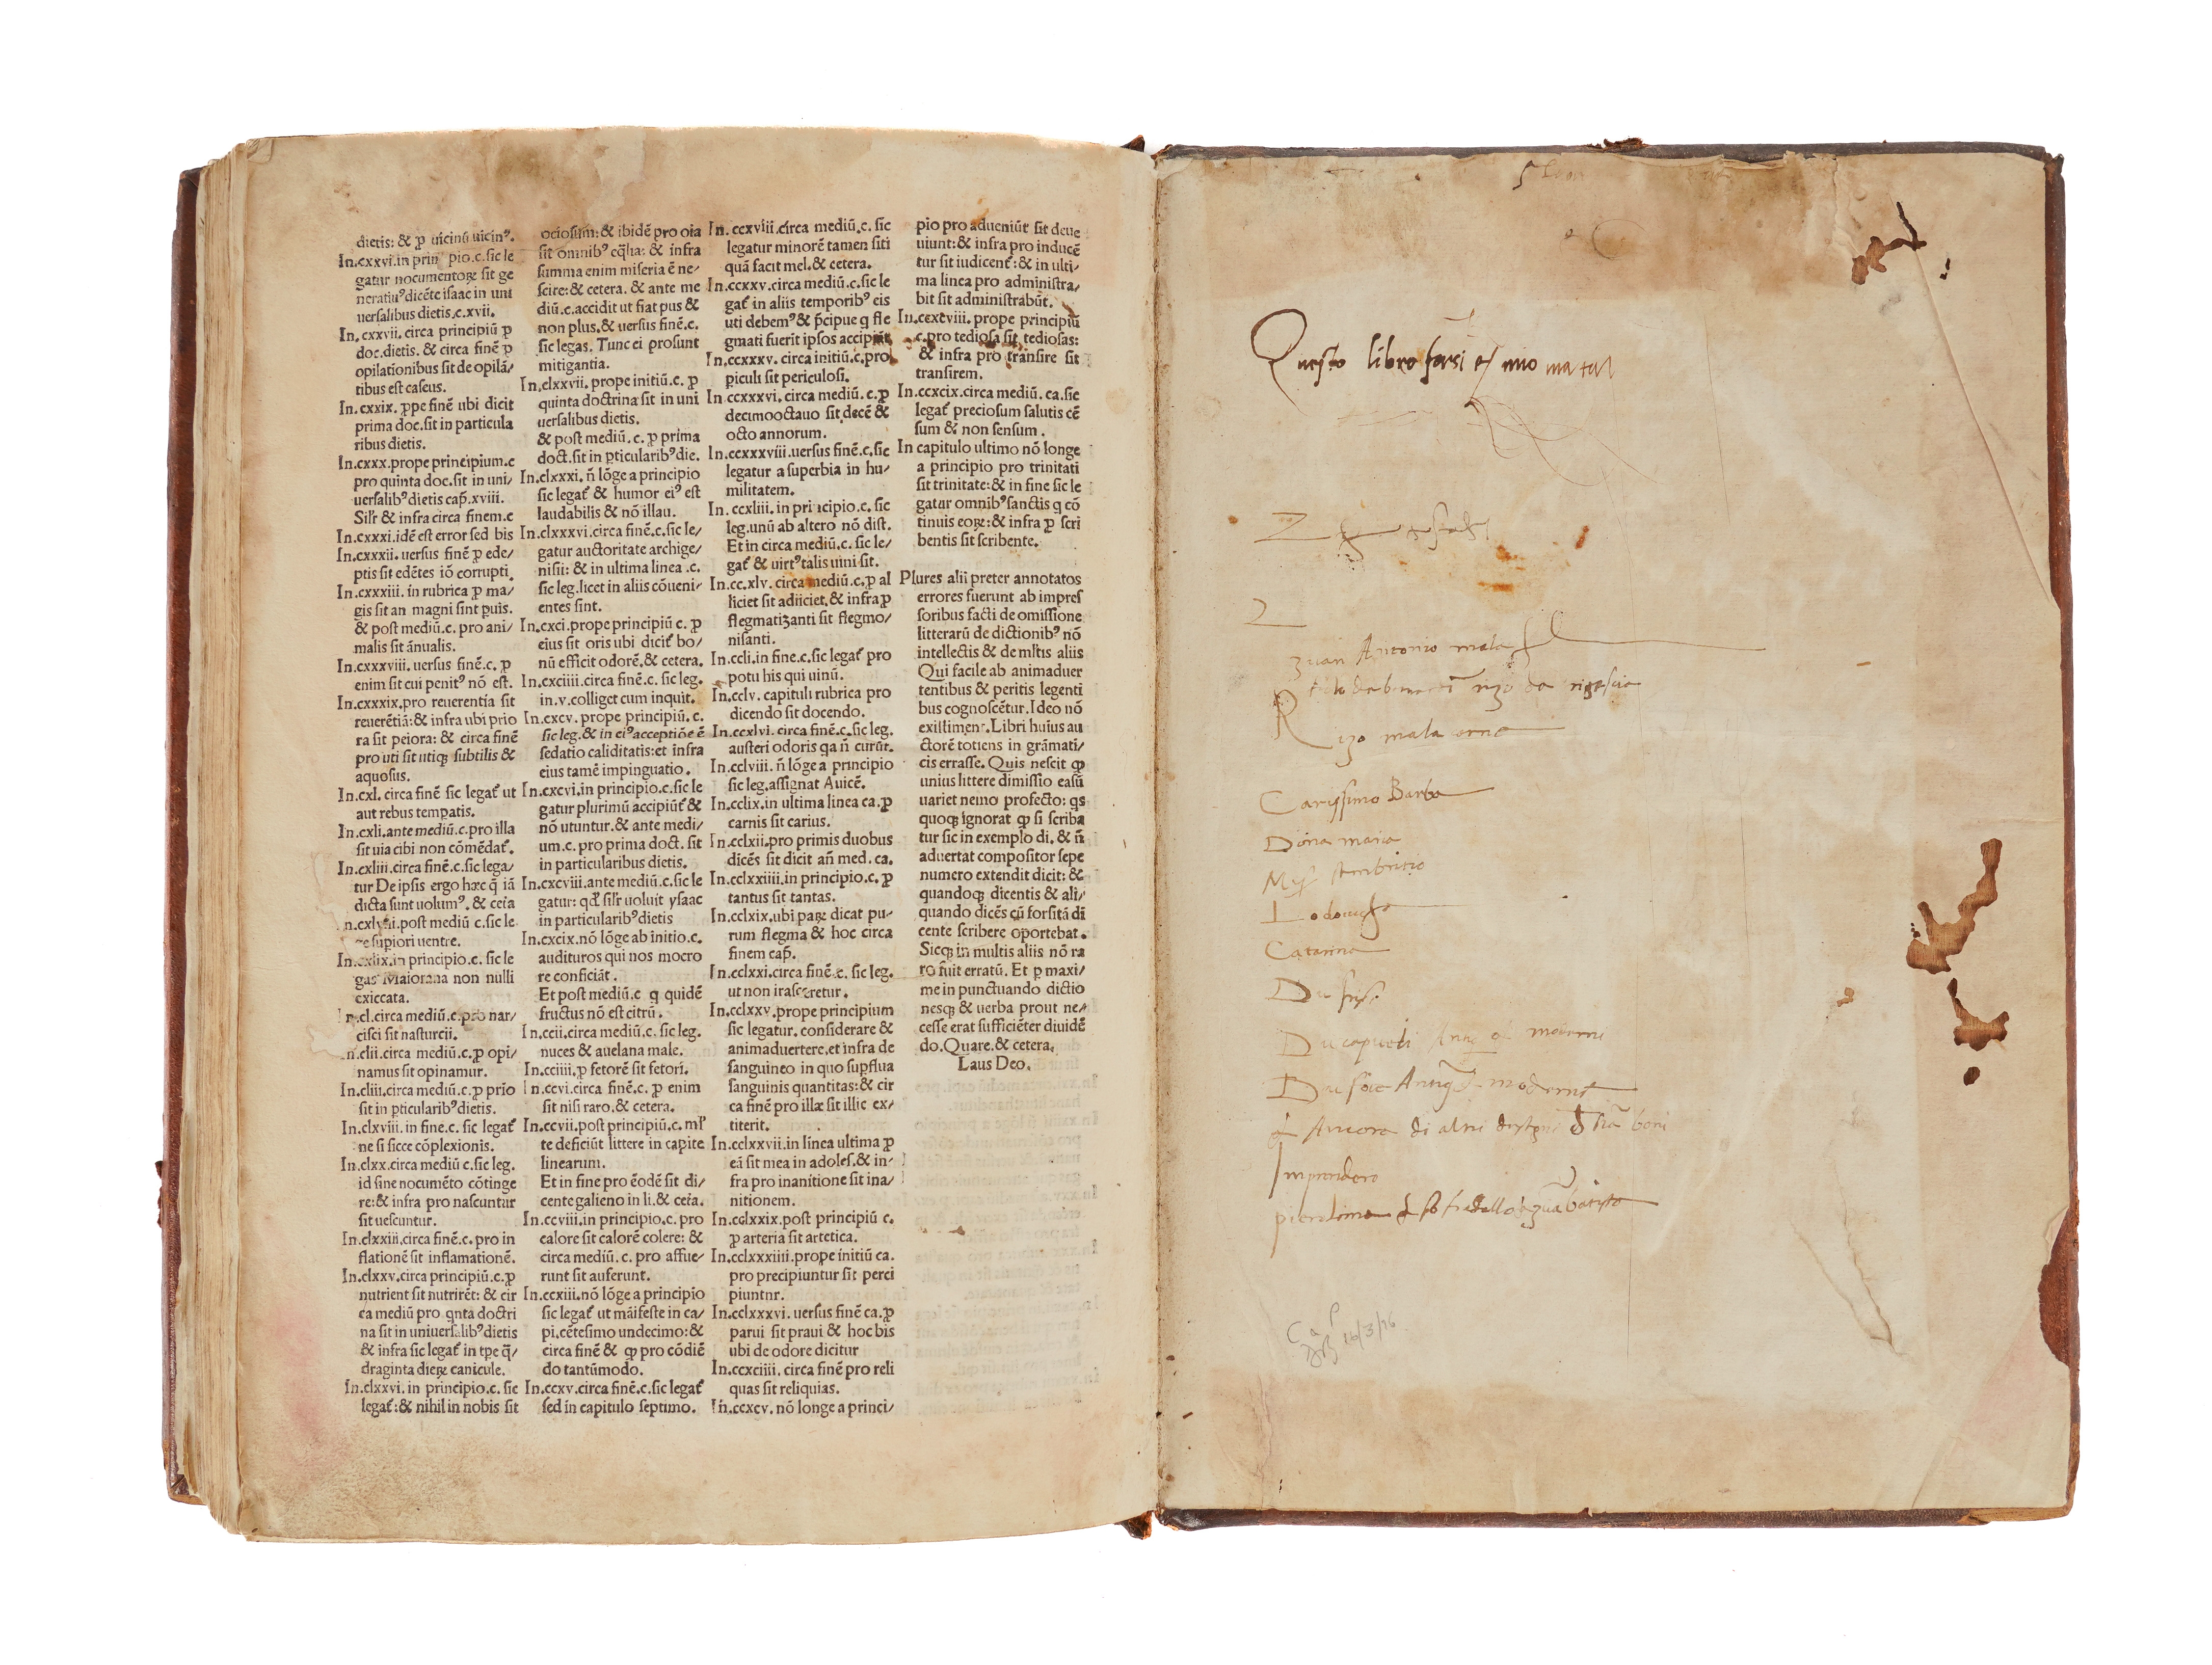 dietis: & ꝓ uicinū uicinꝰ.
In.cxxvi.in prin pio.c.sic le
gatur nocumentoꝝ sit ge
neratiuꝰ dicēte isaac in uni
uersalibus dietis.c.xvii.
In.cxxvii.circa principiū ꝓ
doc.dietis. & circa finē ꝓ
opilationibus sit de opilā/
tibus est caseus.
In.cxxix.ꝓpe finē ubi dicit
prima doc.sit in particula
ribus dietis.
In.cxxx.prope principium.c
pro quinta doc.sit in uni/
uersalibꝰ dietis cap̄.xviii.
Sil'r & infra circa finem.c
In.cxxxi.idē est error sed bis
In.cxxxii.uersus finē ꝓ ede/
ptis sit edētes iō corrupti.
In.cxxxiii.in rubrica ꝓ ma/
gis sit an magni sint puis.
& post mediū.c.pro ani/
malis sit ānualis.
In.cxxxviii.uersus finē.c.ꝓ
enim sit cui penitꝰ nō est.
In.cxxxix.pro reuerentia sit
reuerētiā:& infra ubi prio
ra sit peiora: & circa finē
pro uti sit utiqꝫ subtilis &
aquosus.
In.cxl.circa finē sic legat̄ ut
aut rebus tempatis.
In.cxli.ante mediū.c.pro illa
sit uia cibi non cōmēdat̄.
In.cxliii.circa finē.c.sic lega/
tur De ipsis ergo hæc q̄ iā
dicta sunt uolumꝰ.& cet̄a
post mediū c.sic le
supiori uentre.
In.cxlix.in principio.c.sic le
gat̄ Maiorana non nulli
exiccata.
In.cl.circa mediū.c.pro nar/
cisci sit nasturcii.
In.clii.circa mediū.c.ꝓ opi/
namus sit opinamur.
In.cliii.circa mediū.c.ꝓ prio
sit in ꝑticularibꝰ dietis.
In.clxviii.in fine.c.sic legat̄
ne si sicce cōplexionis.
In.clxx.circa mediū c.sic leg.
id sine nocumēto cōtinge
re:& infra pro nascuntur
sit uescuntur.
In.clxxiii.circa finē.c.pro in
flationē sit inflamationē.
In.clxxv.circa principiū.c.ꝓ
nutrient sit nutrirēt: & cir
ca mediū pro qnta doctri
na sit in uniuersalibꝰ dietis
& infra sic legat̄ in tpe q̄/
draginta dieꝝ canicule.
In.clxxvi.in principio.c.sic
legat̄:& nihil in nobis sit
ociosum:& ibidē pro oia
sit omnibꝰ eq̄lia: & infra
summa enim miseria ē ne/
scire:& cetera. & ante me
diū.c.accidit ut fiat pus &
non plus.& uersus finē.c.
sic legas. Tunc ei prosunt
mitigantia.
In.clxxvii.prope initiū.c.ꝓ
quinta doctrina sit in uni
uersalibus dietis.
& post mediū.c.ꝓ prima
doct.sit in ꝑticularibꝰ die.
In.clxxxi.n̄ lōge a principio
sic legat̄ & humor eiꝰ est
laudabilis & nō illau.
In.clxxxvi.circa finē.c.sic le/
gatur auctoritate archige/
nisii: & in ultima linea .c.
sic leg.licet in aliis cōueni/
entes sint.
In.cxci.prope principiū c.ꝓ
eius sit oris ubi dicit̄ bo/
nū efficit odorē.& cetera.
In.cxciiii.circa finē.c.sic leg.
in.v.colliget cum inquit.
In.cxcv.prope principiū.c.
sic leg.& in eiꝰ acceptiōe ē
sedatio caliditatis:et infra
eius tamē impinguatio.
In.cxcvi.in principio.c.sic le
gatur plurimū accipiūt̄ &
nō utuntur.& ante medi/
um.c.pro prima doct.sit
in particularibus dietis.
In.cxcviii.ante mediū.c.sic le
gatur: qd' sil'r uoluit ysaac
in particularibꝰ dietis
In.cxcix.nō lōge ab initio.c.
audituros qui nos mocro
re conficiāt.
Et post mediū.c q quidē
fructus nō est citrū.
In.ccii.circa mediū.c.sic leg.
nuces & auelana male.
In.cciiii.ꝓ fetorē sit fetori.
In.ccvi.circa finē.c.ꝓ enim
sit nisi raro.& cetera.
In.ccvii.post principiū.c.ml'
te deficiūt littere in capite
linearum.
Et in fine pro ēodē sit di/
cente galieno in li.& cet̄a.
In.ccviii.in principio.c.pro
calore sit calorē colere: &
circa mediū.c.pro affue/
runt sit auferunt.
In.ccxiii.nō lōge a principio
sic legat̄ ut māifeste in ca/
pi.cētesimo undecimo:&
circa finē & qꝓ pro cōdiē
do tantūmodo.
In.ccxv.circa finē.c.sic legat̄
sed in capitulo septimo.
In.ccxviii.circa mediū.c.sic
legatur minorē tamen siti
quā facit mel.& cetera.
In.ccxxv.circa mediū.c.sic le
gat̄ in aliis temporibꝰ eis
uti debemꝰ & p̄cipue q fle
gmati fuerit ipsos accipiūt
In.ccxxxv.circa initiū.c.pro
piculi sit periculosi.
In.ccxxxvi.circa mediū.c.ꝓ
decimooctauo sit decē &
octo annorum.
In.ccxxxviii.uersus finē.c.sic
legatur a superbia in hu/
militatem.
In.ccxliii.in principio.c.sic
leg.unū ab altero nō dist.
Et in circa mediū.c.sic le/
gat̄ & uirtꝰ talis uini sit.
In.cc.xlv.circa mediū.c.ꝓ al
liciet sit adiiciet.& infra ꝓ
flegmatizanti sit flegmo/
nisanti.
In.ccli.in fine.c.sic legat̄ pro
potu his qui uinū.
In.cclv.capituli rubrica pro
dicendo sit docendo.
In.ccxlvi.circa finē.c.sic leg.
austeri odoris qa n̄ curūt.
In.cclviii.n̄ lōge a principio
sic leg.assignat Auicē.
In.cclix.in ultima linea ca.ꝓ
carnis sit carius.
In.cclxii.pro primis duobus
dicēs sit dicit añ med.ca.
In.cclxxiiii.in principio.c.ꝓ
tantus sit tantas.
In.cclxix.ubi paꝝ dicat pu/
rum flegma & hoc circa
finem cap̄.
In.cclxxi.circa finē.c.sic leg.
ut non irasceretur.
In.cclxxv.prope principium
sic legatur.considerare &
animaduertere.et infra de
sanguineo in quo supflua
sanguinis quantitas:& cir
ca finē pro illæ sit illic ex/
titerit.
In.cclxxvii.in linea ultima ꝓ
eā sit mea in adoles.& in/
fra pro inanitione sit ina/
nitionem.
In.cclxxix.post principiū c.
ꝓ arteria sit artetica.
In.cclxxxiiii.prope initiū ca.
pro precipiuntur sit perci
piuntnr.
In.cclxxxvi.uersus finē ca.ꝓ
parui sit praui & hoc bis
ubi de odore dicitur
In.ccxciiii.circa finē pro reli
quas sit reliquias.
In.ccxcv.nō longe a princi/
pio pro adueniūt sit deue
uiunt:& infra pro inducē
tur sit iudicent̄:& in ulti/
ma linea pro administra/
bit sit administrabūt.
In.ccxcviii.prope principiū
c.pro tediosa sit tediosas:
& infra pro transire sit
transirem.
In.ccxcix.circa mediū.ca.sic
legat̄ preciosum salutis cē
sum & non sensum.
In capitulo ultimo nō longe
a principio pro trinitati
sit trinitate:& in fine sic le
gatur omnibꝰ sanctis q cō
tinuis eoꝝ:& infra ꝓ scri
bentis sit scribente.
Plures alii preter annotatos
errores fuerunt ab impres
soribus facti de omissione
litterarū de dictionibꝰ nō
intellectis & de ml'tis aliis
Qui facile ab animaduer
tentibus & peritis legenti
bus cognoscētur.Ideo nō
existiment.Libri huius au
ctorē totiens in grāmati/
cis errasse. Quis nescit qꝓ
unius littere dimissio casū
uariet nemo profecto: qs
quoqꝫ ignorat qꝓ si scriba
tur sic in exemplo di. & n̄
aduertat compositor sepe
numero extendit dicit: &
quandoqꝫ dicentis & ali/
quando dicēs cū forsitā di
cente scribere oportebat.
Sicqꝫ in multis aliis nō ra
ro fuit erratū. Et ꝑ maxi/
me in punctuando dictio
nesqꝫ & uerba prout ne/
cesse erat sufficiēter diuidē
do.Quare.& cetera.
Laus Deo.
Questo libro mio
Z
2
zuan Antonio mala
Rizo mala
Carissimo Barba
Dona maria
Lodouicho
Catarina
Ancora di altri boni
Imprendero
fradello zuā batista
26/3/16